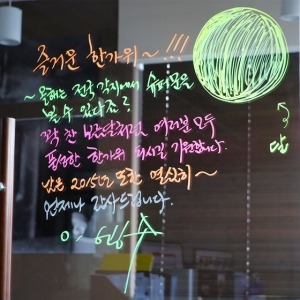 즐거운 한가위~!!!
~올해는 전국 각지에서 슈퍼문을
볼 수 있다죠?
꽉 찬 보름달처럼 여러분 모두
풍성한 한가위 되시길 기원합니다.
남은 2015년도 또한 열심히~
언제나 감사드립니다.
달